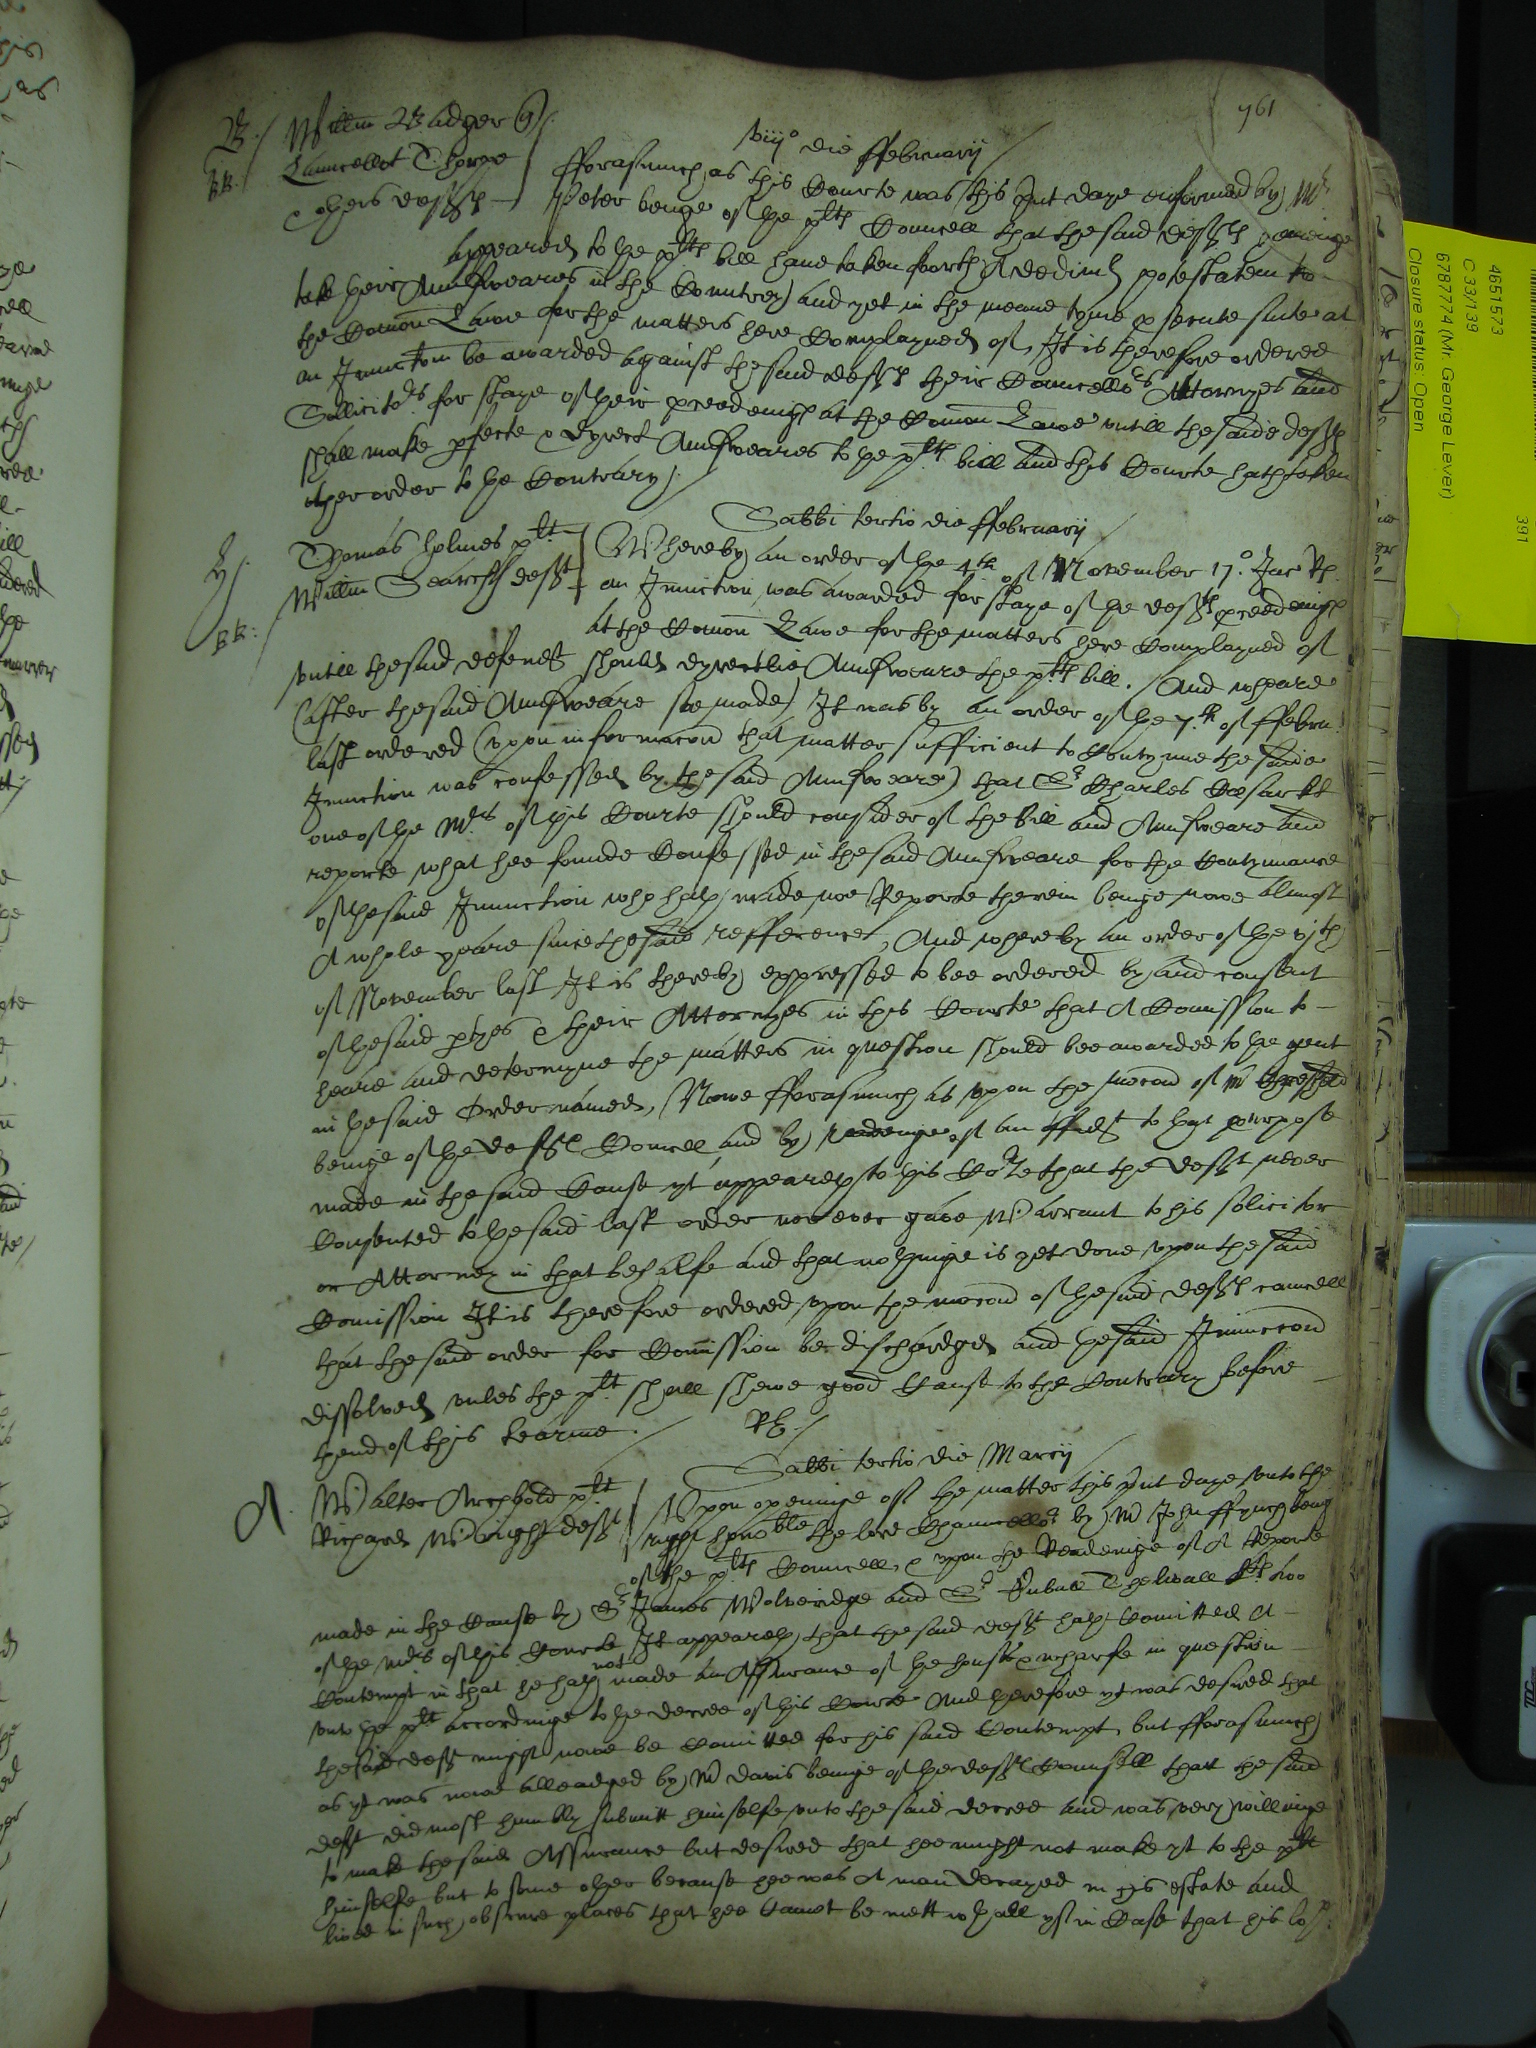 761
viij° die ffebruarij
B. Willm Badger q
RR. Launcellot Thorpe
& others deftes
fforasmuch as this Courte was this pnt daye informed by Mr
Peter beinge of the pltes Councell that the said deftes haveinge
appeared to the pltes bill have taken foorth A dedimus potestatem to
take their Aunsweares in the Countrey and yet in the meane tyme psecute suite at
the Comon Lawe for the matters here Complayned of, It is therefore ordered
an Iniunccon be awarded against the said deftes their Councellors Attorneyes and
Sollicitors for staye of their pceedeings at the Comon Lawe untill the saide deftes
shall make pfecte & dyrect Aunsweares to the pltes bill and this Courte hath taken
other order to the Contrary.
Sabbi tertio die ffebruarij
Thomas Holmes plt
Willm Searchfeld deft
RR:
Whereby an order of the 4th of November 17° Jac Rs
an Iniunction was awarded for staye of the deftes pceedeings
at the Comon Lawe for the matters here Complayned of
untill the said defendt should dyrectlie Aunsweare the pltes bill. And wheare
(after the said Aunsweare soe made) It was by an order of the 7th of ffebru:
last ordered (upon informacon that matter sufficient to Contynue the saide
Iniunction was confessed by the said Aunsweare) that Sr Charles Cæsar kt
one of the Mrs of this Courte should consider of the bill and Aunsweare and
reporte what hee founde Confessed in the said Aunsweare for the Contynuance
of the said Iniunction who hath made noe Reporte therein beinge nowe almost
A whole yeare since the said refference, And whereby an order of the vjth
of November last It is thereby expressed to bee ordered by and consent
of the said ptyes & their Attorneyes in this Courte that A Comission to
heare and determyne the matters in question should bee awarded to the gent
in the said Order named, Nowe fforasmuch as upon the mocon of Mr
beinge of the deftes Councell and by readeinge of an affidt to that purpose
made in the said Cause yt appeareth to this Corte that the deft never
Consented to the said last order nor ever gave Warrant to his solicitor
or Attorney in that behalfe and that nothinge is yet done upon the said
Comission It is therefore ordered upon the mocon of the said deftes councell
that the said order for Comission be dischardged and the said Iniunccon
dissolved unles the plt shall shewe good Cause to the Contrary before
thend of this tearme.
Sabbi tertio die Marcij
A. Walter Archbold plt
Richard Wright deft
Upon openinge of the matter this pnt daye unto the
right honoble the lord Chauncellor by Mr John ffynch being
of the pltes Councell, & upon the Readeinge of A Reporte
made in the Cause by Sr James Wolveridge and Sr Eubule Thelwall kts two
of the Mrs of this Courte It appeareth that the said deft hath Comitted A
Contempt in that he hath not made an Assurance of the house & wharfe in question
unto the plt accordinge to the decree of this Courte And therefore yt was desired that
the said deft might nowe be Comitted for his said Contempt, but fforasmuch
as yt was nowe alleadged by Mr Davis beinge of the deftes Counsell that the said
deft did most humbly submitt himselfe unto the said decree and was very willinge
to make the said Assurance but desired that hee might not make yt to the plt
himselfe but to some other because hee was A man decayed in his estate and
lived in such obscure places that hee Cannot be mett withall yf in Case that his
4651573
C 33/139
6787774 (Mr. George Lever)
Closure status: Open
391